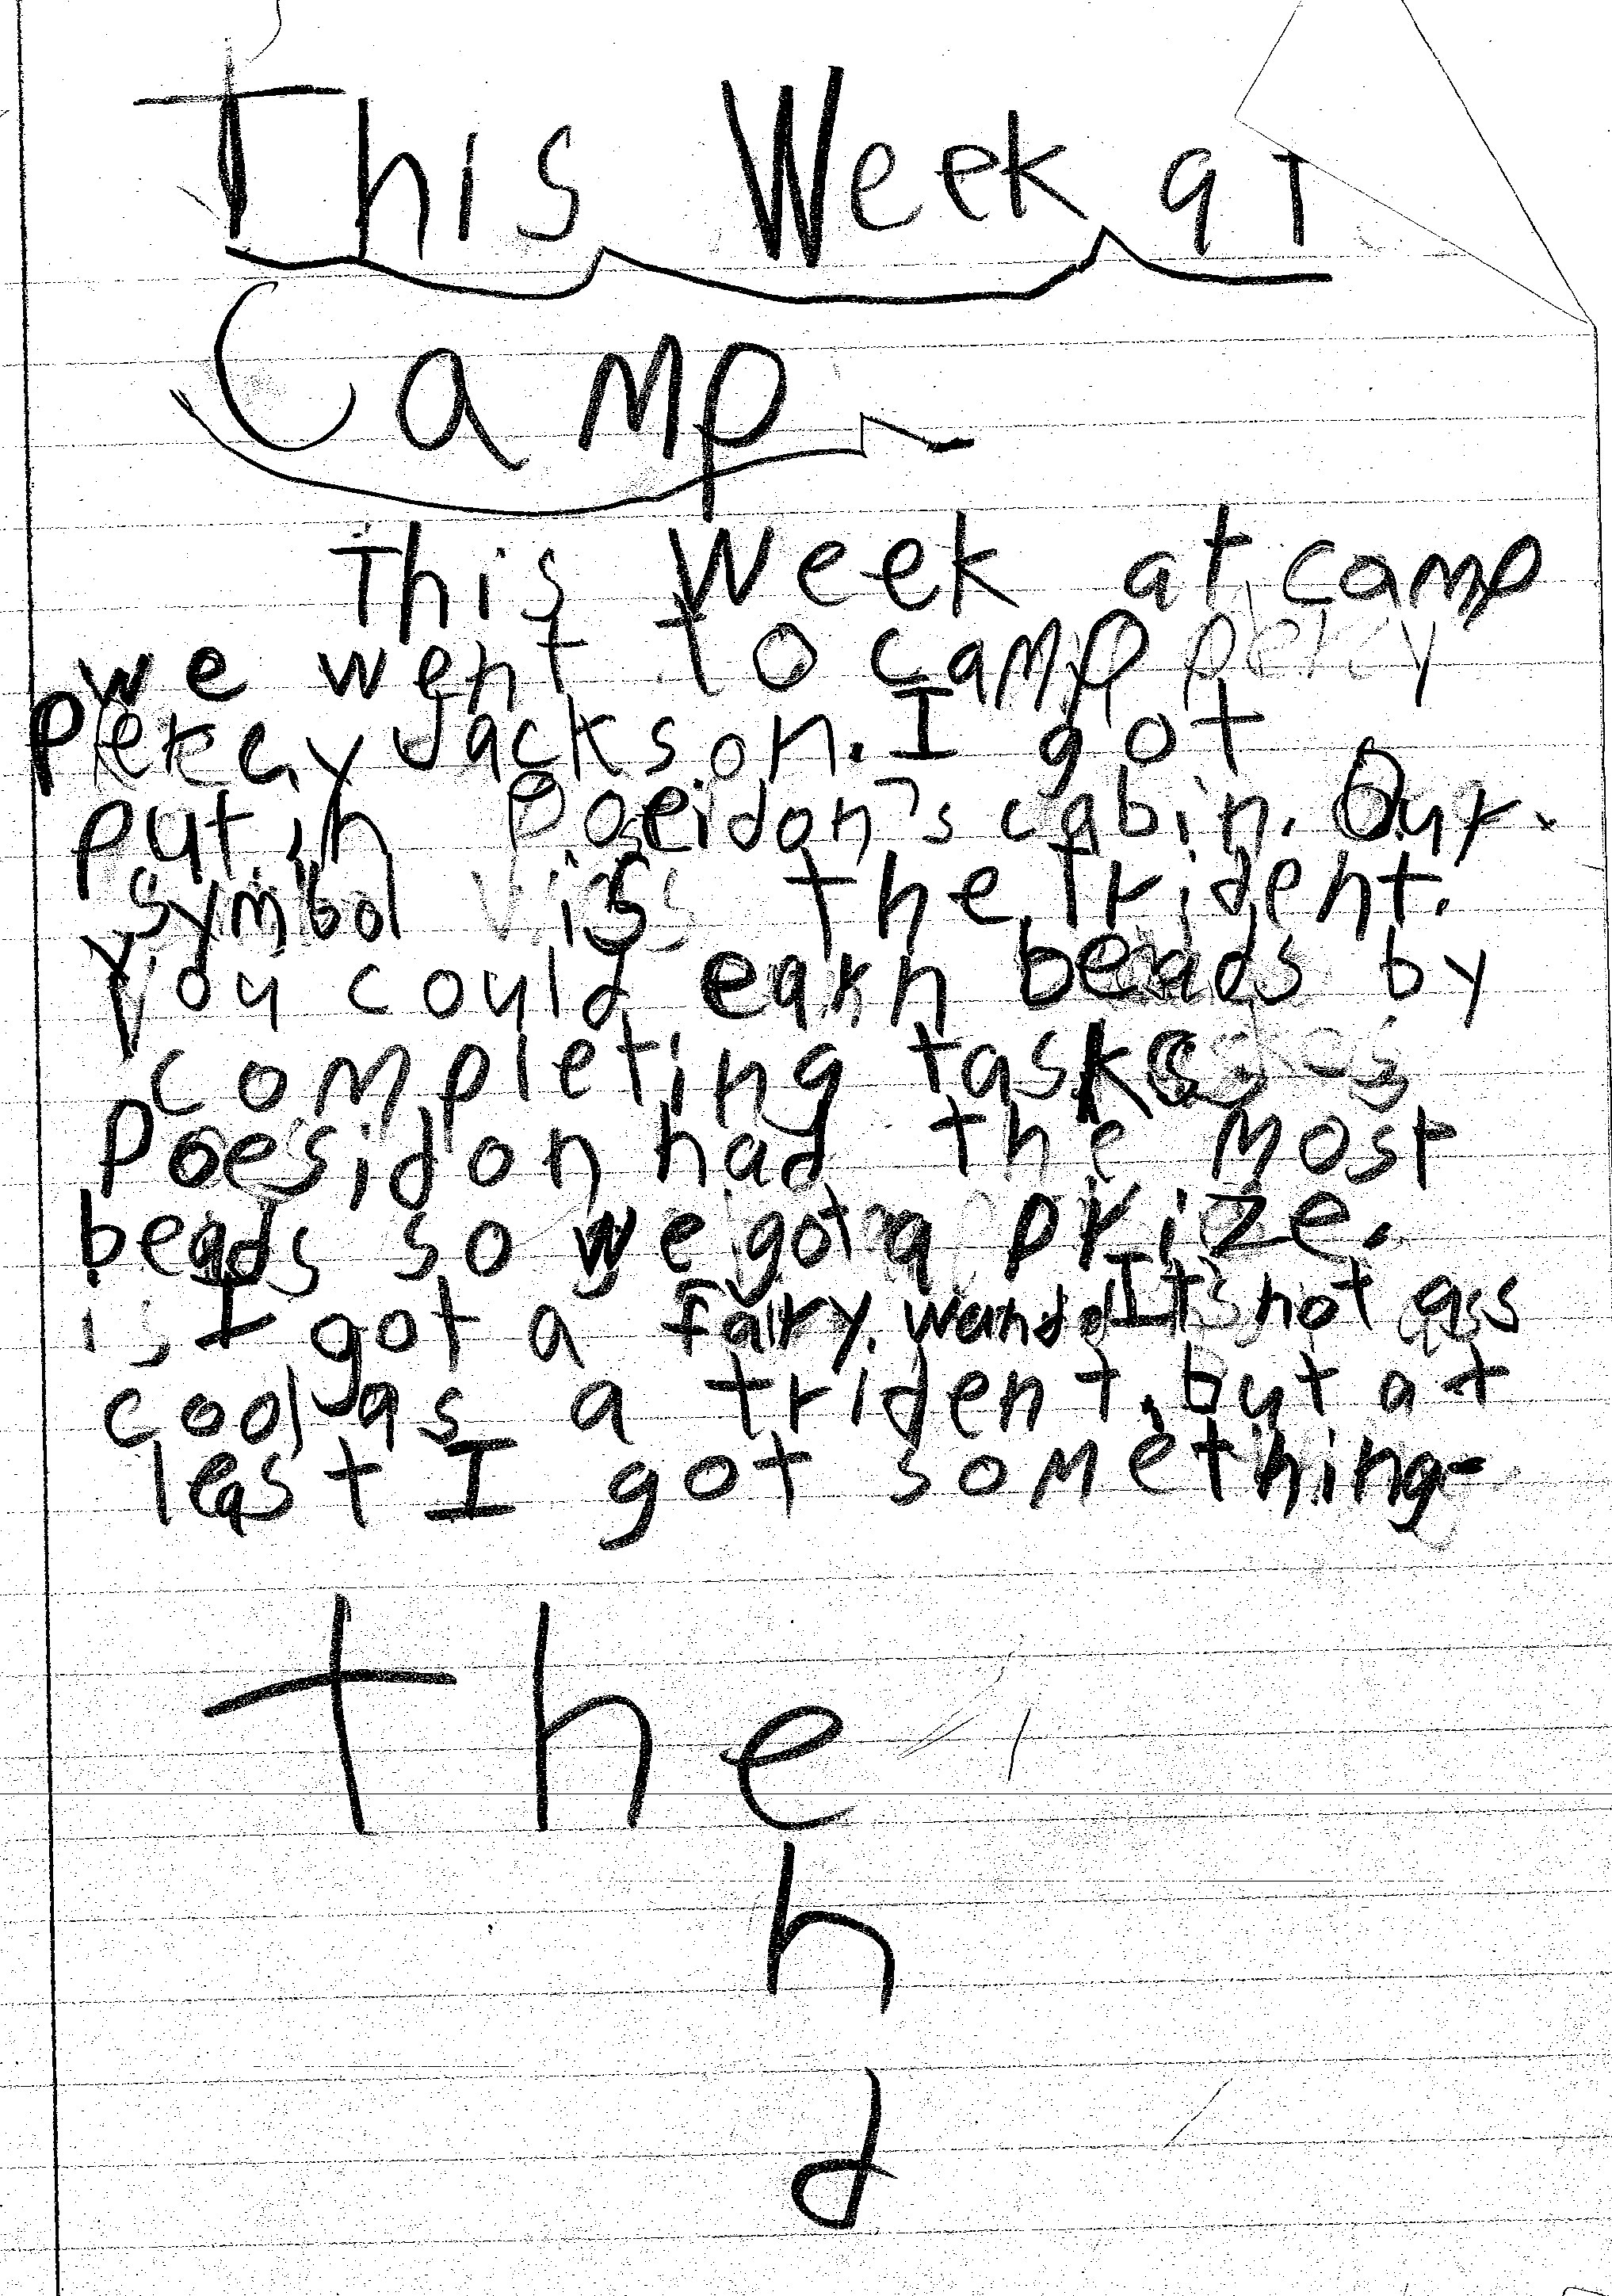 This Week at
Camp
This Week at camp
we went to camp percy
Percy Jackson. I got
put in Poseidon's cabin. Our
symbol is the trident.
You could earn beads by
completing tasks.
Poesidon had the most
beads so we got a prize.
I got a fairy wand. It's not as
cool as a trident, but at
least I got something.
the
n
d